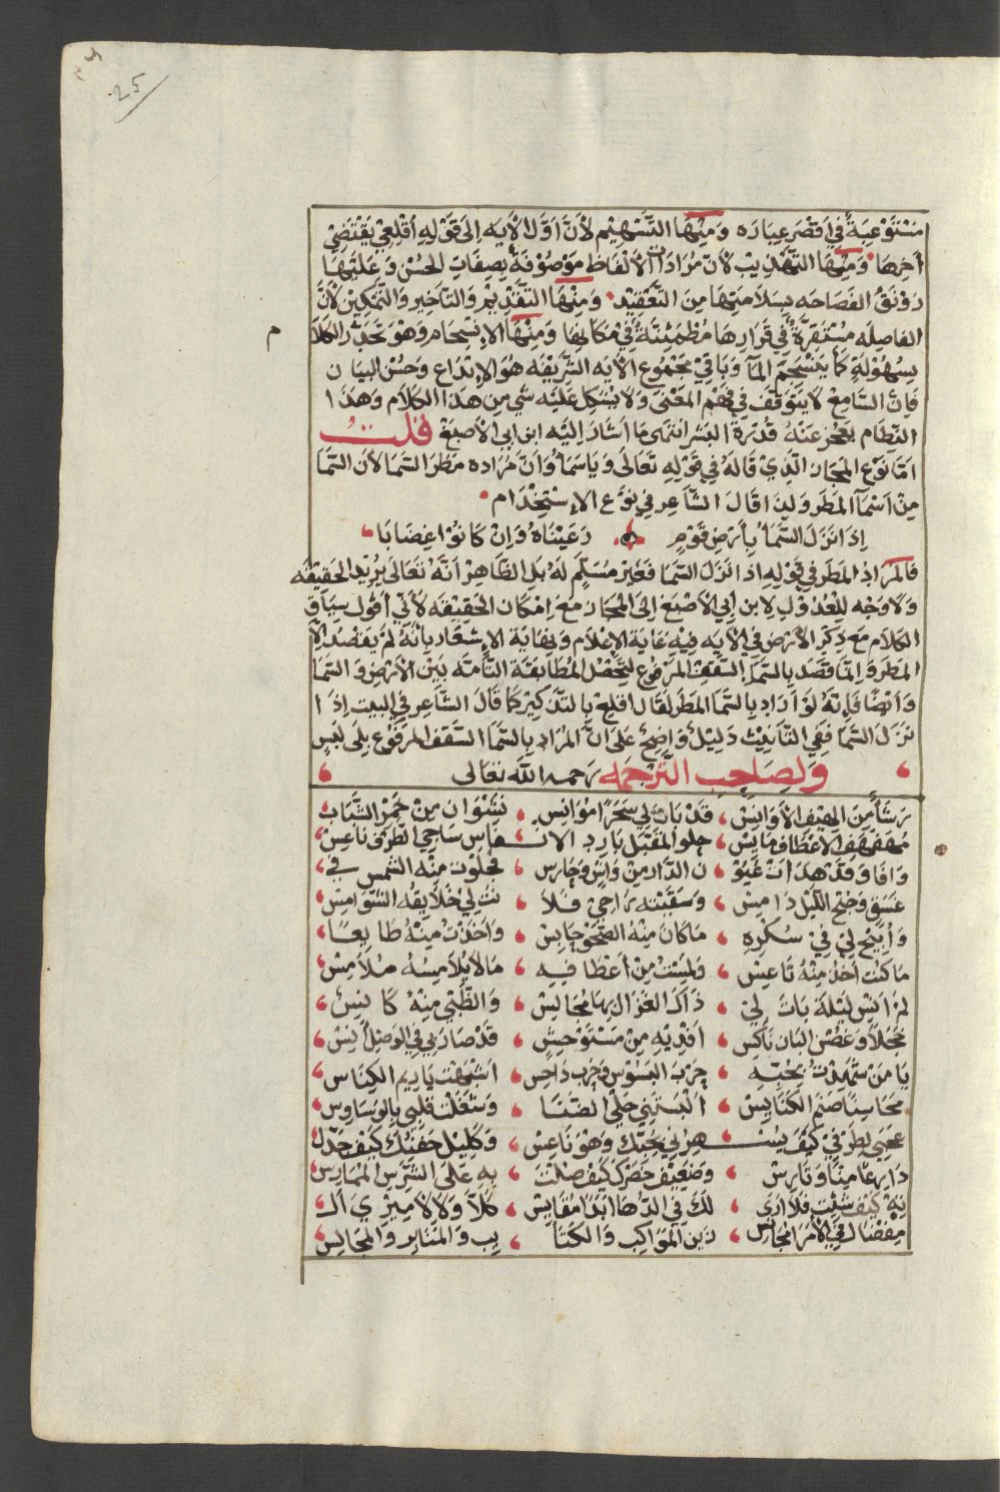 25
مستوعبة في اقصر عباره ومنها التسهيم لان اول الايه الى قوله اقلعي يقتضي
اخرها ومنها التهذيب لان مفردات الالفاظ موصوفة بصفات الحسن وعليها
رونق الفصاحه بسلامتها من التعقيد ومنها التقديم والتاخير والتمكين لان
الفاصله مستقرة في قرارها مطمئنة في مكانها ومنها الانسجام وهو تحدر الكلا م
بسهولة كما ينسجم الما وباقي مجموع الايه الشريفه هو الابداع وحسن البيان
فان السامع لا يتوقف في فهم المعنى ولا يشكل عليه شي من هذا الكلام وهذا
النظام يعجز عنه قدرة البشر انتهى ما اشار اليه ابن ابي الاصبع قلت
اما نوع المجاز الذي قاله في قوله تعالى ويا سما وان مراده مطر السما لان السما
من اسما المطر ولذا قال الشاعر في نوع الاستخدام
اذا نزل السما بارض قوم رعيناه وان كانوا غضابا
فالمراد المطر في قوله اذا نزل السما فغير مسلم له بل الظاهر انه تعالى يريد الحقيقه
ولا وجه للعدول لابن ابي الاصبع الى المجاز مع امكان الحقيقه لاني اقول سياق
الكلام مع ذكر الارض في الايه فيه غاية الاعلام ونهاية الاشعار بانه لم يقصد الا
المطر وانما قصد بالسما السقف المرفوع لتحصل المطابقة التامة بين الارض والسما
وايضا فانه لو اراد بالسما المطر لقال اقلع بالتذكير كما قال الشاعر في البيت اذا
نزل السما ففي التانيث دليل واضح على ان المراد بالسما السقف المرفوع بلى لبس
ولصاحب الترجمه رحمه الله تعالى
رشأ من الهيف الاوانس قد بات لي سحرا موانس نشوان من خمر الشباب
مهفهف الاعطاف مايس حلو المقبل بارد الانفاس ساجي الطرف ناعس
وافا وقد هدات عيون الدار من واش وحارس فجلوت منه الشمس في
غسق وجنح الليل دامس وسقيته راحي فلا نت لي خلايقه الشوامس
وابيح لي في سكره ما كان منه الصحو حابس واخذت منه طايعا
ما كنت اخذ منه ناعس ولمست من اعطافه ما لا يلامسه ملامس
لم انس ليلة بات لي ذاك الغزال بها مجالس والظبي منه كانس
خجلا وغصن البان ناكس افديه من مستوحش قد صار بي في الوصل انس
يا من شهدت بحبه حرب البسوس وحرب داحس اشبهت يا ريم الكناس
محاسنا صنم الكنايس البستني حلي الضنا وشغلت قلبي بالوساوس
عجبي لطرفي كيف يسهرني بحبك وهو ناعس وكليل جفنيك كيف جدل
دارعا منا وتارس وضعيف خصرك كيف صلت به على الشرس الممارس
ته كيف شيت فلا ارى لك في الدها ابدا مقايس كلا ولا لاميري ال
مفضال في الامر المجانس زين المواكب والكتا يب والمنابر والمجالس